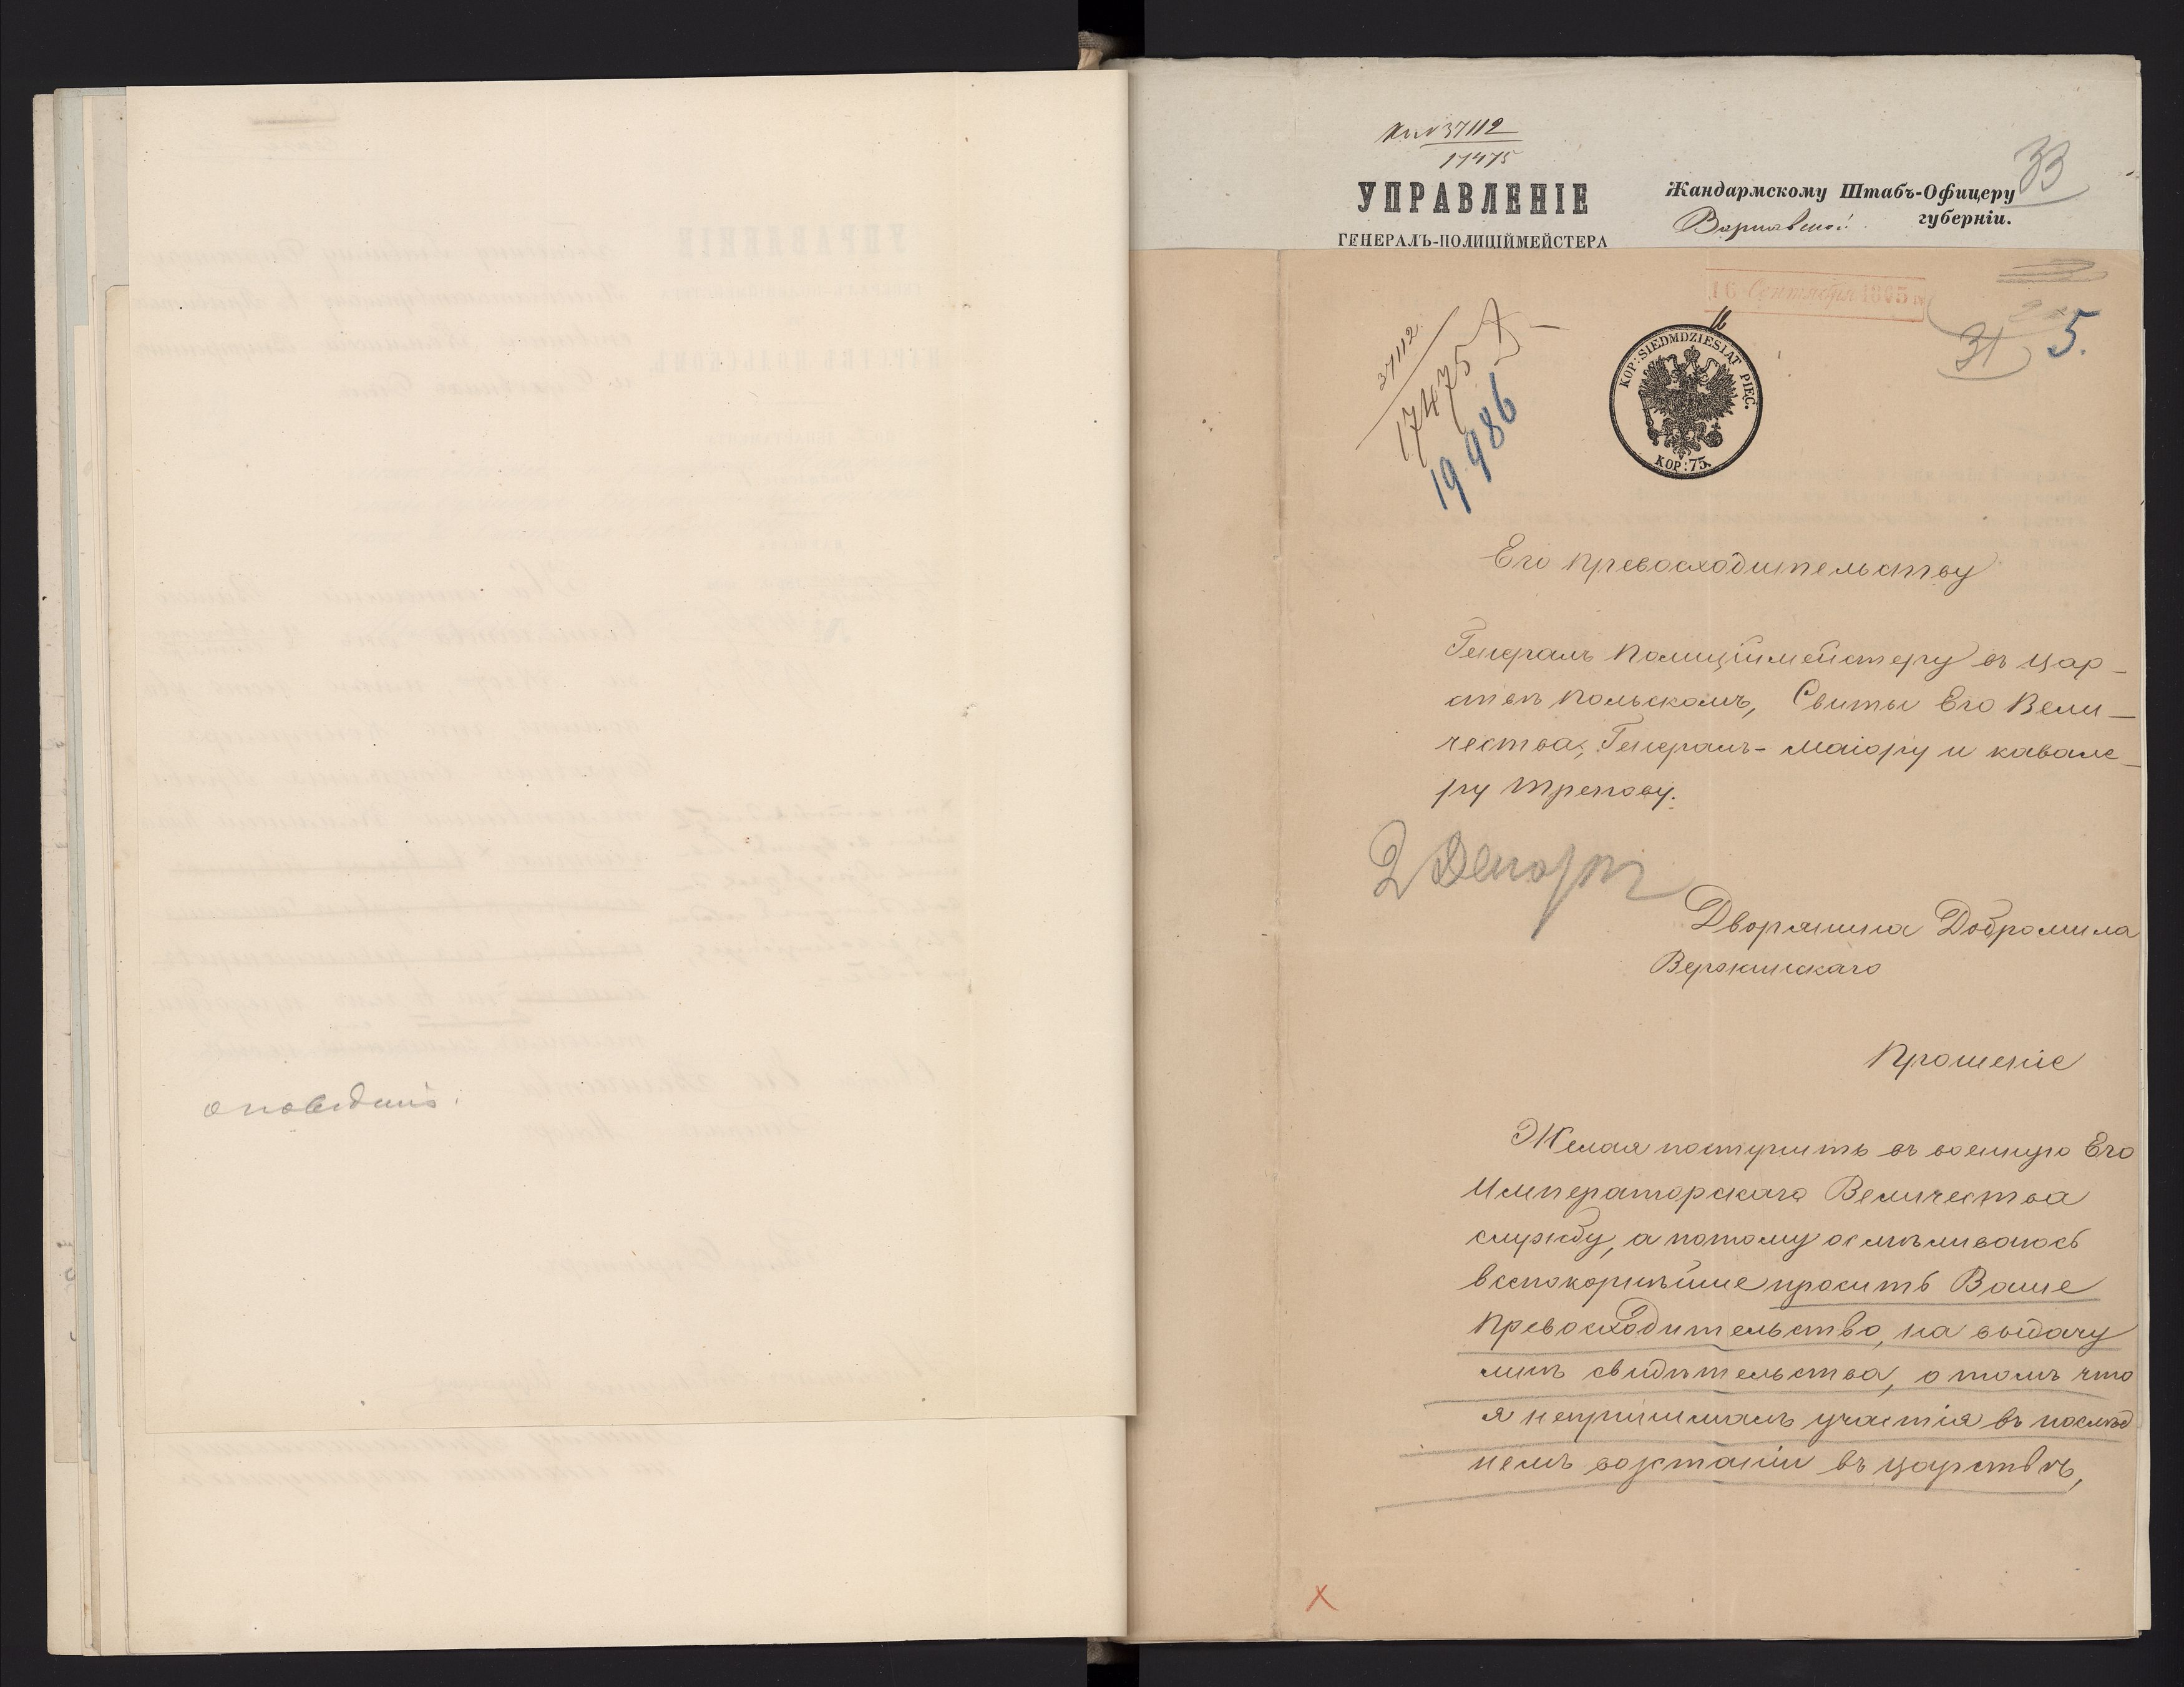 оповѣденіе.
Къ № 37112
17475
УПРАВЛЕНІЕ
ГЕНЕРАЛЪ-ПОЛИЦІЙМЕЙСТЕРА
Жандармскому Штабъ-Офицеру
Варшавской губерніи.
33
16 Сентября 1865
16
31
5.
37112
17475
19486
KOP: SIEDMDZIESIĄT PIĘĆ.
KOP: 75.
Его Превосходительству
Генералъ Полиціймейстеру въ Цар-
ствѣ Польскомъ, Свиты Его Вели-
чества, Генералъ-Маіору и кавале-
ру Трепову.
2
Дворянина Добромила
Вержинскаго
Прошеніе
Желая поступить въ военную Его
Императорскаго Величества
службу, а потому осмѣливаюсь
всепокорнѣйше просить Ваше
Превосходительство, на выдачу
мнѣ свидѣтельства, о томъ что
я непринималъ участія въ послѣд
немъ возстаніи въ царствѣ,
X